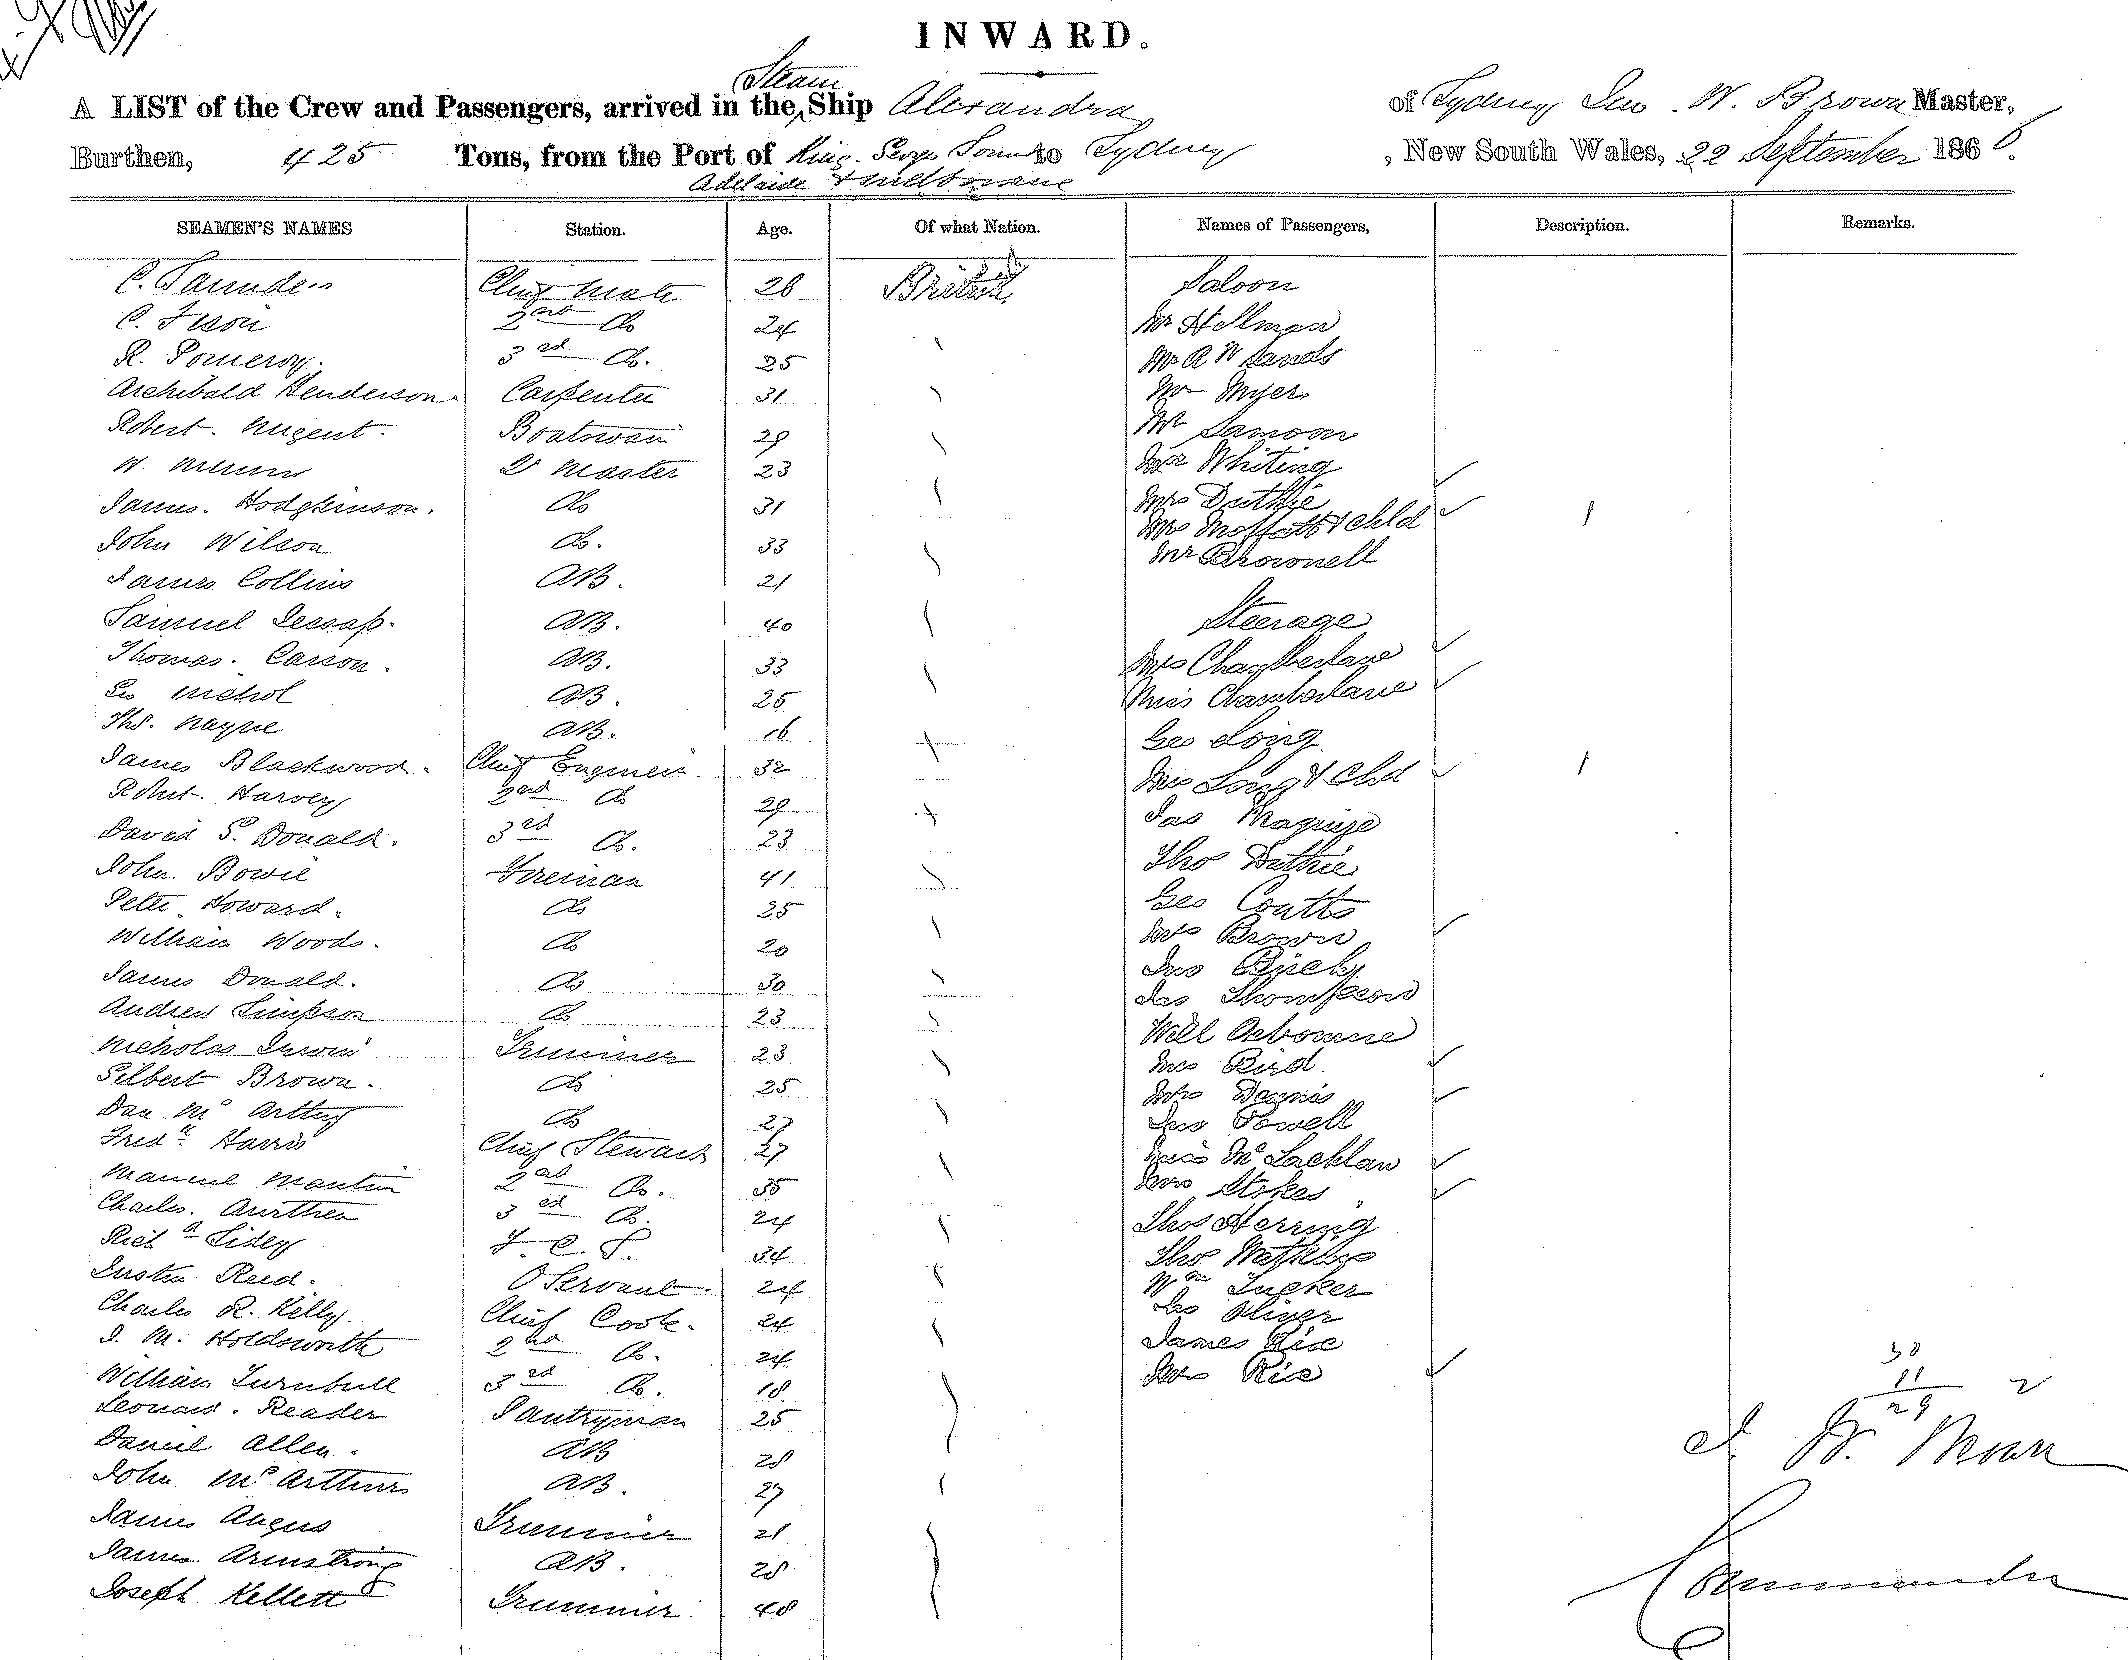 INWARD.
Steam
A LIST of the Crew and Passengers, arrived in the Ship Alexandra of Sydney Geo. W. Brown Master,
Burthen, 425 Tons, from the Port of King George Sound to Sydney, New South Wales, 22 September 1866.
Adelaide & Melbourne
SEAMEN'S NAMES Station. Age. Of what Nation. Names of Passengers, Description. Remarks.
C. Saunders Chief Mate 26 British Saloon
C. 2nd Do 24 Mr Hellman
R. Pomeroy. 3rd Do. 25 Mr R W Sands
Archibald Henderson. Carpenter 31 Mr Myers
Robert. Nugent. Boatswain 29 Mr
W. 2 Master 23 Mr Whiting
James. Hodgkinson. Do 31 Mrs Duthie
Mrs Moffatt & Chld
John Wilson Do. 33 Mr Brownell
James Collins AB. 21
Samuel Jessap. AB. 40 Steerage
Thomas. Carson. AB. 33 Mrs Chamberlane
Geo Nichol AB. 25 Miss Chamberlane
Ths. Nayne AB. 16 Geo Long
James Blackwood. Chief Engineer 32 Mrs Long & Chd
Robert. Harvey 2nd Do 29 Jas Maguire
David S. Donald. 3rd Do. 23 Tho Duthie
John. Bowie Fireman 41 Geo Coutts
Peter Howard. Do 25 Mrs Brown
William Woods. Do 20 Jno
James Donald. Do 30 Jas Thompson
Andrew Simpson Do 23 Will Osborne
Nicholas Irwin Trimmer 23 Mrs Bird
Gilbert Brown. Do 25 Mrs Dennis
Dan Mc Arthur Do 27 Jno Powell
Fredk. Harris Chief Steward 27 Miss Mc Lachlan
Manuel Mantin 2nd Do. 35 Mrs Stokes
Charles. 3rd Do. 24 Thos Herring
Richd Sidey F. C. S. 34 Tho Watkins
Reed. O Servant 24 Wm Tucker
Charles R. Kelly. Chief Cook. 24 Oliver
J. M. Holdsworth 2nd Do. 24 James Rix
William Turnbull 3rd Do. 18 Mrs Rix
Leonard. Reader Pantryman 25
Daniel Allen. AB 28
John McArthur AB. 27
James Angus Trimmer 21
James. Armstrong AB. 28
Joseph Kellett Trimmer 48
30
11
29 2
Commander